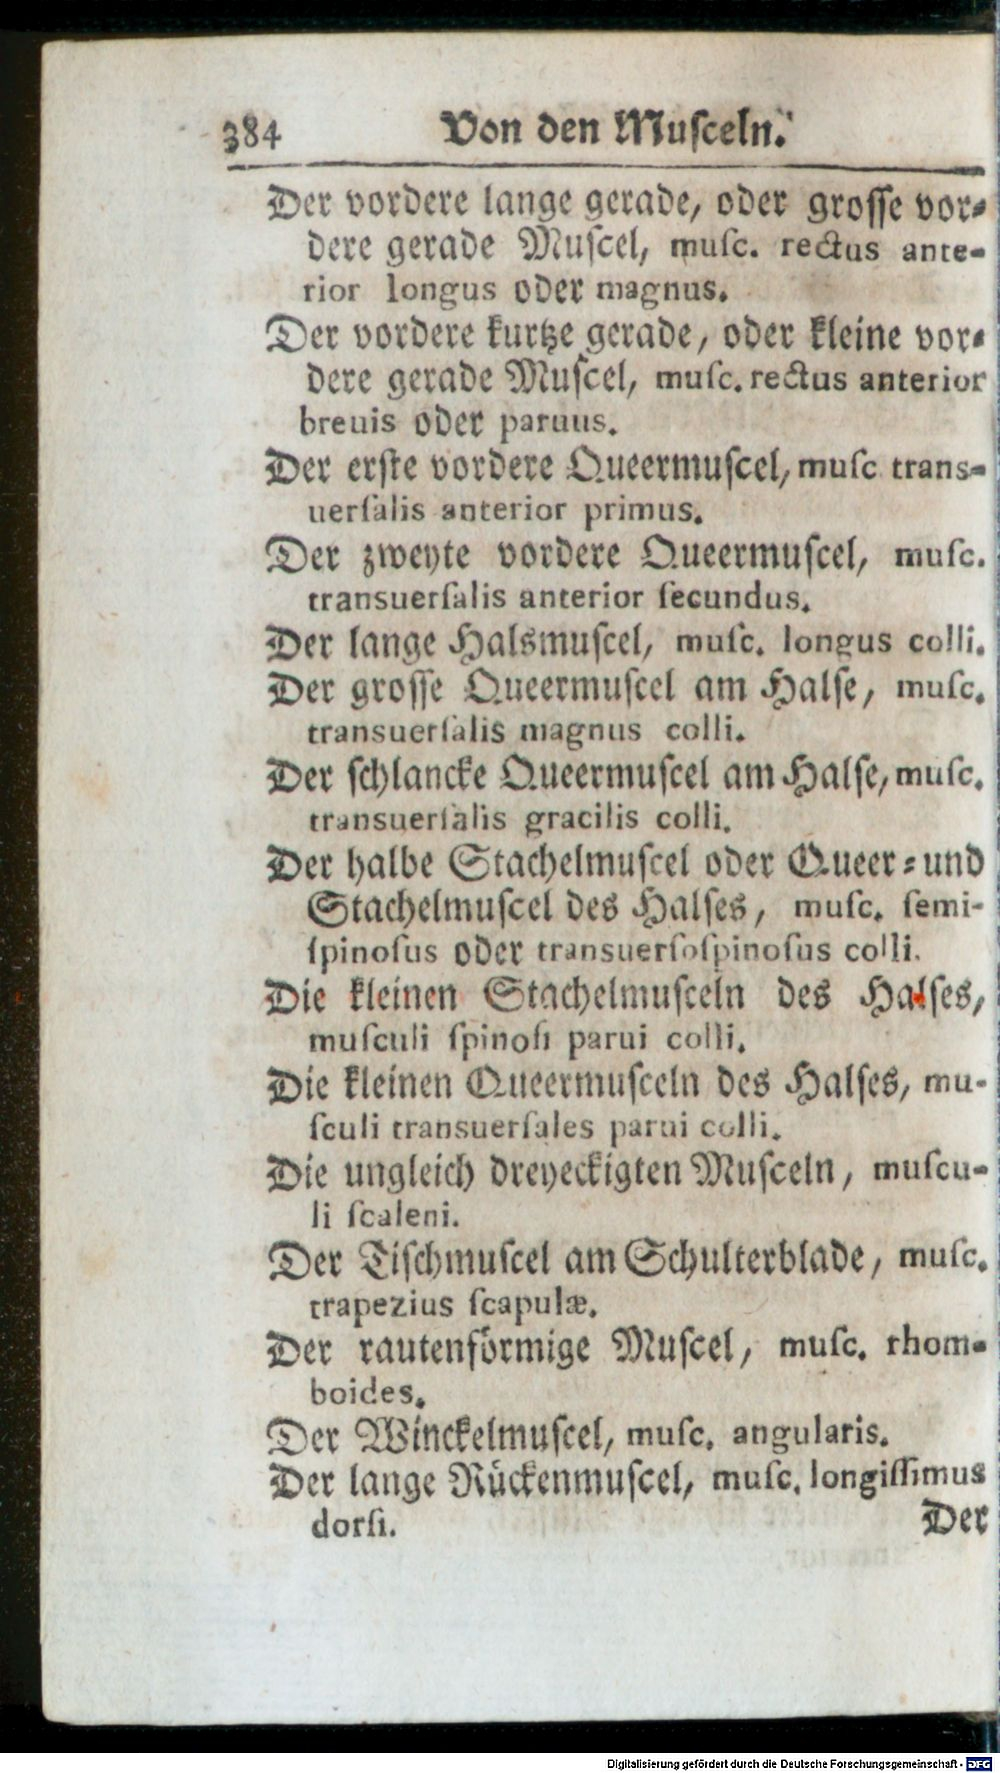 384 Von den Musceln.
Der vordere lange gerade, oder grosse vor-
dere gerade Muscel, musc. rectus ante-
rior longus oder magnus.
Der vordere kurtze gerade, oder kleine vor-
dere gerade Muscel, musc. rectus anterior
breuis oder paruus.
Der erste vordere Queermuscel, musc trans-
uersalis anterior primus.
Der zweyte vordere Queermuscel, musc.
transuersalis anterior secundus.
Der lange Halsmuscel, musc. longus colli.
Der grosse Queermuscel am Halse, musc.
transuersalis magnus colli.
Der schlancke Queermuscel am Halse, musc.
transuersalis gracilis colli.
Der halbe Stachelmuscel oder Queer-und
Stachelmuscel des Halses, musc. semi-
spinosus oder transuersospinosus colli.
Die kleinen Stachelmusceln des Halses,
musculi spinosi parui colli.
Die kleinen Queermusceln des Halses, mu-
sculi transuersales parui colli.
Die ungleich dreyeckigten Musceln, muscu-
li scaleni.
Der Tischmuscel am Schulterblade, musc.
trapezius scapulæ.
Der rautenförmige Muscel, musc. rhom-
boides.
Der Winckelmuscel, musc. angularis.
Der lange Rückenmuscel, musc. longissimus
dorsi. Der
Digitalisierung gefördert durch die Deutsche Forschungsgemeinschaft - DFG